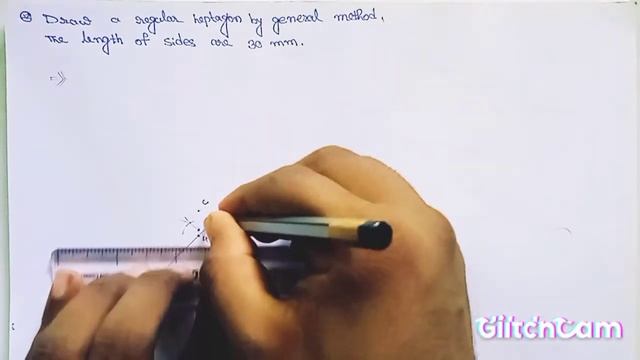 Draw a regular heptagon by general method.
The length of sides are 30 mm.
GlitchCam